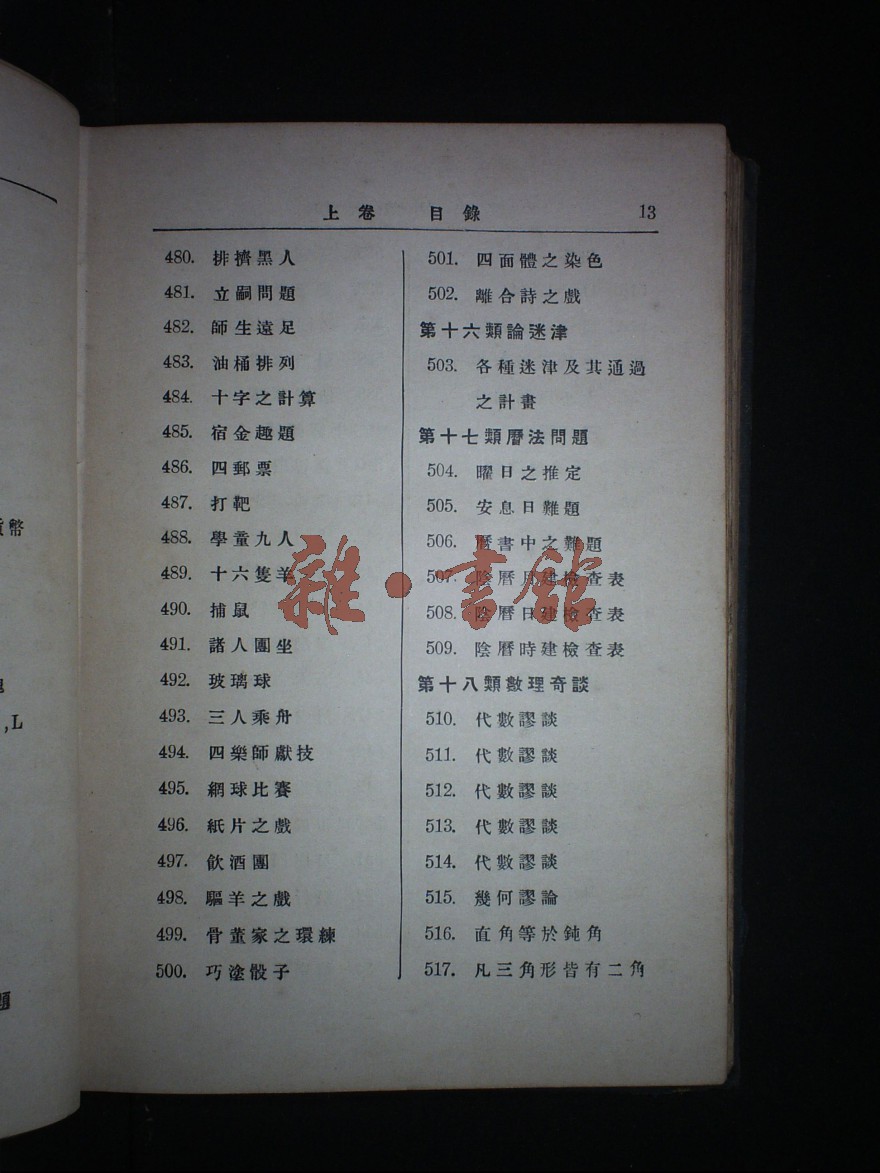 上卷 目錄 13
480. 排擠黑人
481. 立嗣問題
482. 師生遠足
483. 油桶排列
484. 十字之計算
485. 宿金趣題
486. 四郵票
487. 打靶
488. 學童九人
489. 十六隻羊
490. 捕鼠
491. 諸人團坐
492. 玻璃球
493. 三人乘舟
494. 四樂師獻技
495. 網球比賽
496. 紙片之戲
497. 飲酒團
498. 驅羊之戲
499. 骨董家之環練
500. 巧塗骰子
501. 四面體之染色
502. 離合詩之戲
第十六類論迷津
503. 各種迷津及其通過
之計畫
第十七類曆法問題
504. 曜日之推定
505. 安息日難題
506. 曆書中之難題
507. 陰曆月建檢查表
508. 陰曆日建檢查表
509. 陰曆時建檢查表
第十八類數理奇談
510. 代數謬談
511. 代數謬談
512. 代數謬談
513. 代數謬談
514. 代數謬談
515. 幾何謬論
516. 直角等於鈍角
517. 凡三角形皆有二角
雜·書館
幣
,L
題